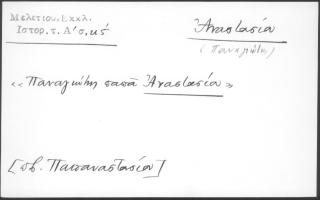 Μελετίου. Εκκλ.
Ιστορ. τ. Α' σ. κς́
Ἀναστασία
(Παναγιώτη)
«Παναγιώτης παπᾶ Ἀναστασία»
[πβ. Παπαναστασία]